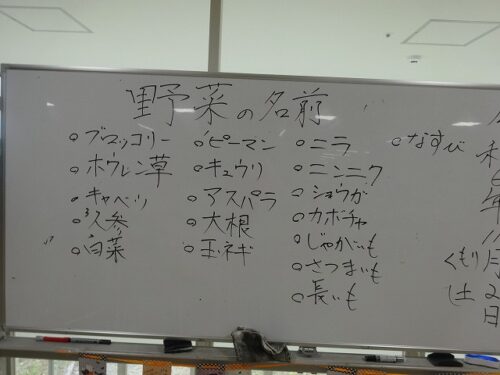 野菜の名前
ブロッコリー
ホウレン草
キャベツ
人参
白菜
ピーマン
キュウリ
アスパラ
大根
玉ネギ
ニラ
ニンニク
ショウガ
カボチャ
じゃがいも
さつまいも
長いも
なすび
くもり
土